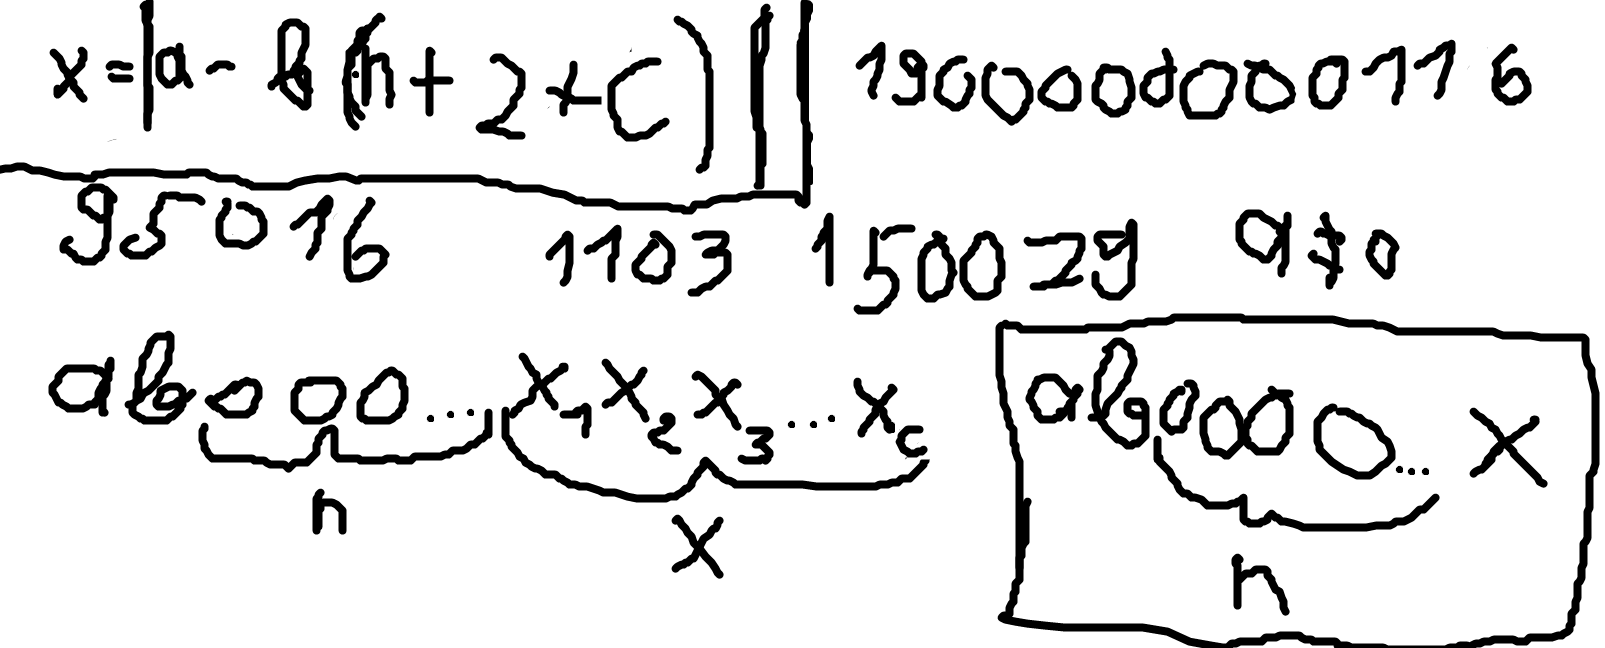 x = |a - b(n+2+c)| 1900000000116
95016 1103 150029 a≠0
ab000...x₁x₂x₃...x_c ab0000...x
n x n